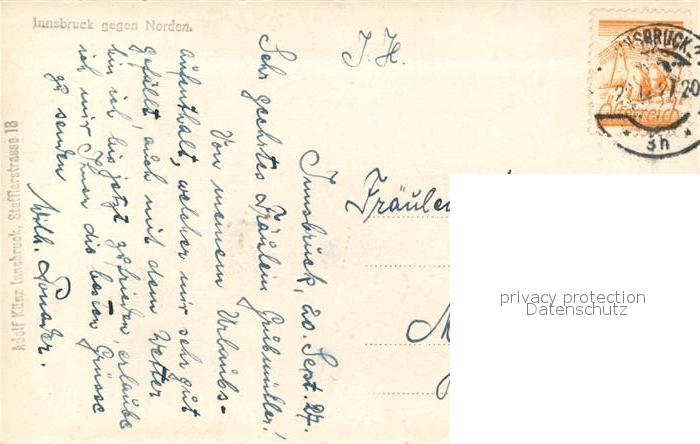 Innsbruck gegen Norden.
I. H.
INNSBRUCK
20
Österreich
3h
Innsbruck, 20. Sept. 27.
Sehr geehrtes Fräulein Grubmüller!
Von meinem Urlaubs-
aufenthalt, welcher mir sehr gut
gefällt, auch mit dem Wetter
bin ich bis jetzt zufrieden, erlaube
ich mir Ihnen die besten Grüsse
zu senden
Wilh.
Fräulein
M
Adolf Künz Innsbruck, Stafflerstrasse 18
privacy protection
Datenschutz